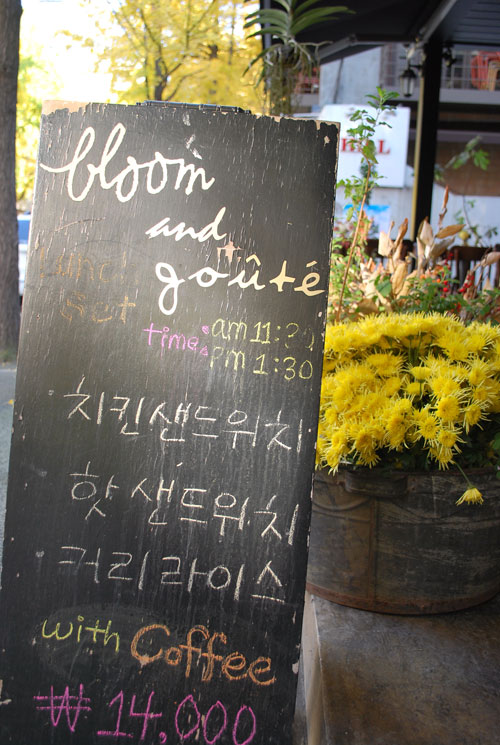 bloom
and
goûté
Lunch
Set
time: am 11:30
pm 1:30
치킨샌드위치
핫샌드위치
커리라이스
with Coffee
₩14,000